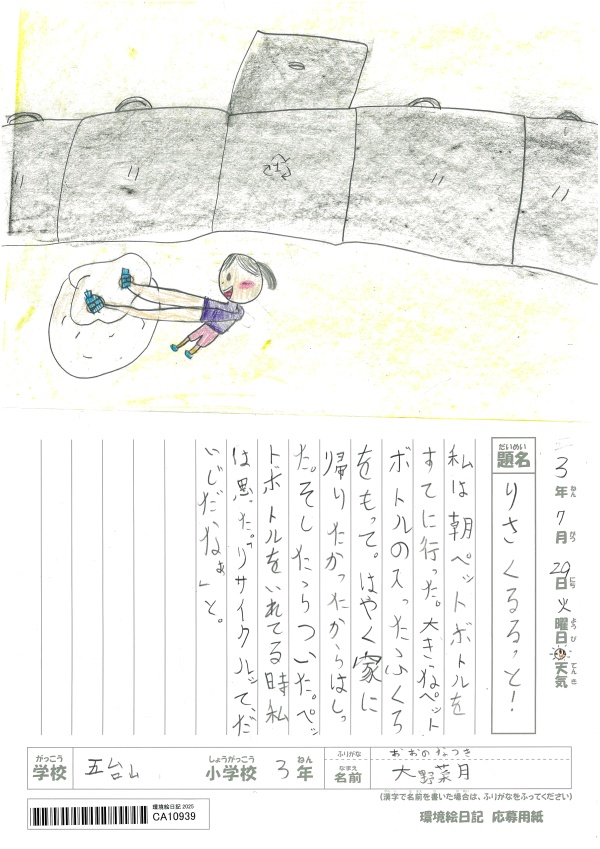 3年7月29日火曜日天気
ねん がつ にち ようび てんき
だいめい
題名
りさくるるっと!
私は朝ペットボトルを
すてに行った。大きなペット
ボトルの入ったふくろ
をもって。はやく家に
帰りたかったからはしっ
た。そしたらついた。ペッ
トボトルをいれてる時私
は思った。「リサイクルって、だ
いじだなぁ」と。
がっこう
学校
五台山
しょうがっこう
小学校
3年
ねん
ふりがな
おおのなつき
なまえ
名前
大野菜月
(漢字で名前を書いた場合は、ふりがなをふってください)
環境絵日記 2025
CA10939
環境絵日記 応募用紙